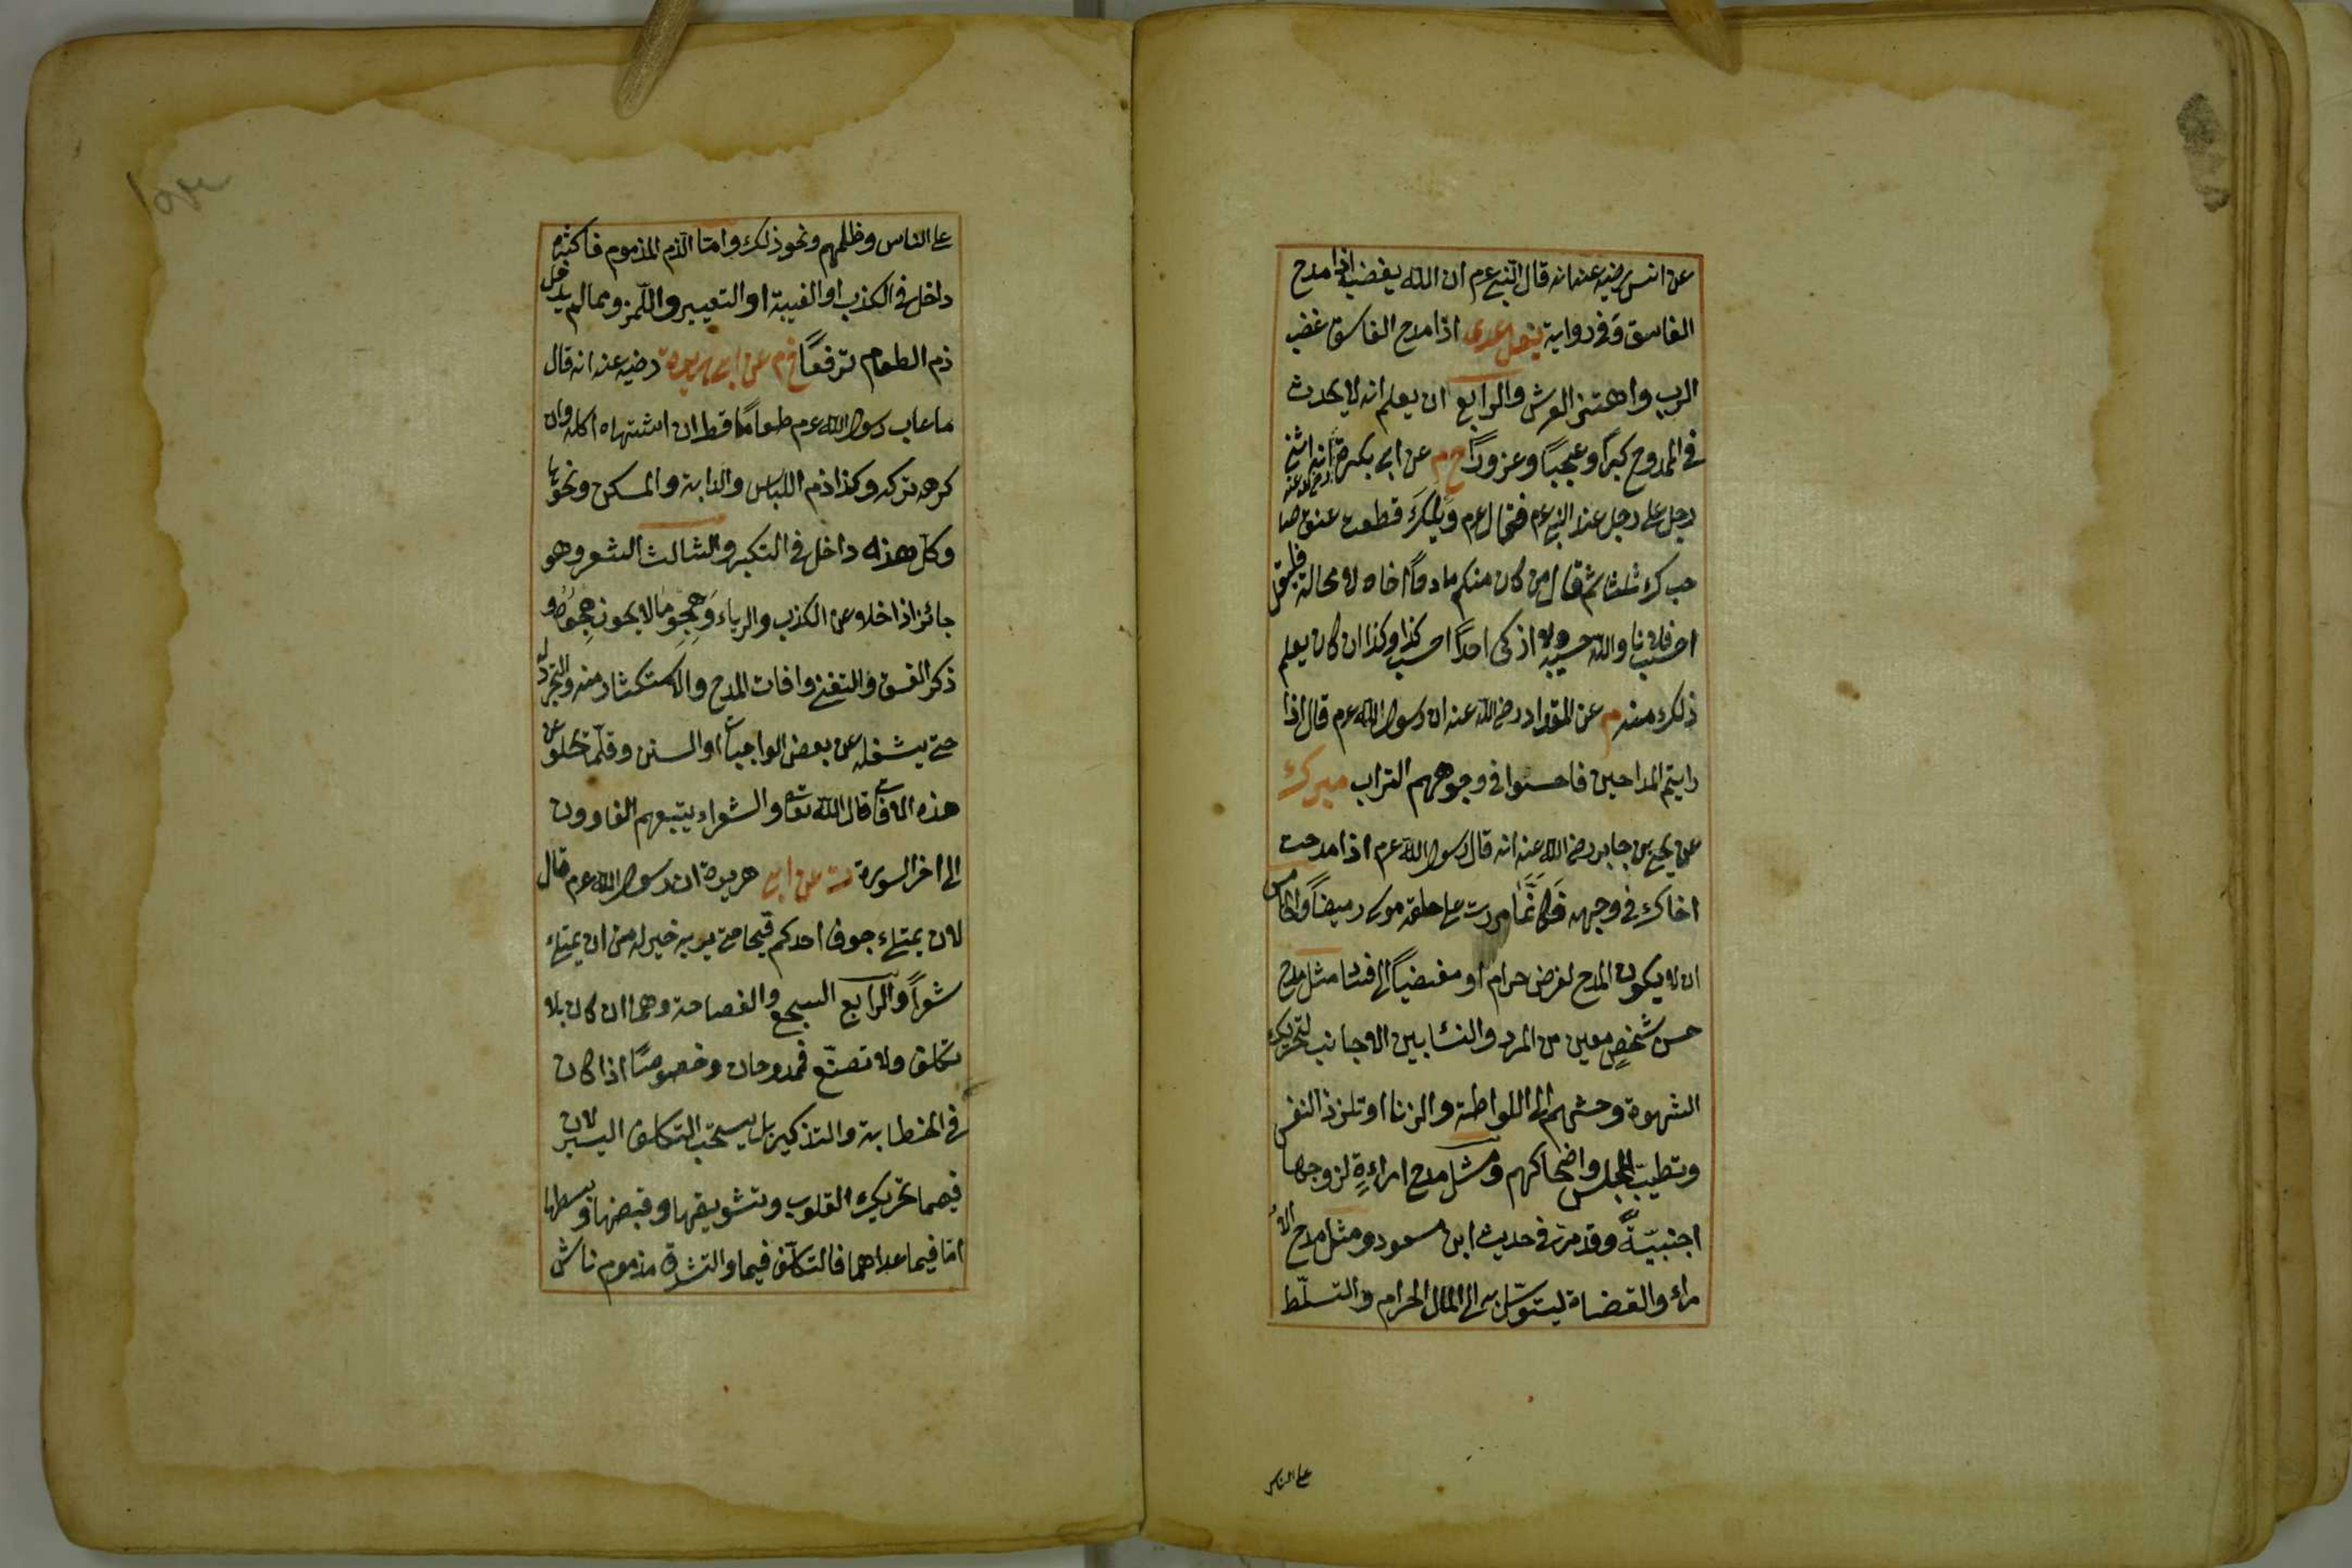 عن انس رضيه عنه انه قال النبي عرم ان الله يغضب اذا مدح
الفاسق وفي رواية يعلى عدى اذا مدح الفاسق غضب
الرب واهتز العرش والرابع ان يعلم انه لا يحدث
في الممدوح كبرا وعجبا وغرورا خ م عن ابي بكرة رضي الله عنه انه اثنى
رجل على رجل عند النبي عرم فقال عرم ويلك قطعت عنق صا
حبك ثلثا ثم قال من كان منكم مادحا اخاه لا محالة فليقل
احسب فلانا والله حسيبه ولا ازكى احدا احسب كذا وكذا ان كان يعلم
ذلك منه م عن المقداد رضي الله عنه ان رسول الله عرم قال اذا
رايتم المداحين فاحثوا في وجوههم التراب مبرك
عن يحيى بن جابر رضي الله عنه انه قال رسول الله عرم اذا مدحت
اخاك في وجهه فكانما مررت على حلقه موسى رميضا والخامس
ان لا يكون المدح لغرض حرام او مفضيا الى فساد مثل مدح
حسن شخص معين من المرد والنساء بين الاجانب لتحريك
الشهوة وحثهم الى اللواطة والزنا او تلذذ النفس
وتطييب المجلس واضحاكهم ومثل مدح امراءة لزوجها
اجنبية وقد مر في حديث ابن مسعود ومثل مدح الا
مراء والقضاة ليتوسل به الى المال الحرام والتسلط
على الناس
على الناس وظلمهم ونحو ذلك واما الذم المذموم فاكثره
داخل في الكذب او الغيبة او التعيير واللمز ومما لم يدخل
ذم الطعام ترفعا خ م عن ابي هريرة رضيه عنه انه قال
ما عاب رسول الله عرم طعاما قط ان اشتهاه اكله وان
كرهه تركه وكذا ذم اللباس والدابة والمسكن ونحوها
وكل هذه داخل في التكبر والثالث الشعر وهو
جائز اذا خلا عن الكذب والرياء وهجو ما لا يجوز هجوه و
ذكر الفسق والتغني وافات المدح والاستكثار منه والتجرد له
حتى يشغله عن بعض الواجبات او السنن وقلما تخلو عن
هذه الافات قال الله تعالى والشعراء يتبعهم الغاوون
الى اخر السورة ت عن ابي هريرة ان رسول الله عرم قال
لان يمتلئ جوف احدكم قيحا حتى يريه خير له من ان يمتلئ
شعرا والرابع السجع والفصاحة وهما ان كان بلا
تكلف ولا تصنع فممدوحان وخصوصا اذا كان
في الخطابة والتذكير بل يستحب التكلف اليسير لان
فيهما تحريك القلوب وتشويقها وقبضها وبسطها
اما فيما عداهما فالتكلف فيهما والتشدق مذموم ناش